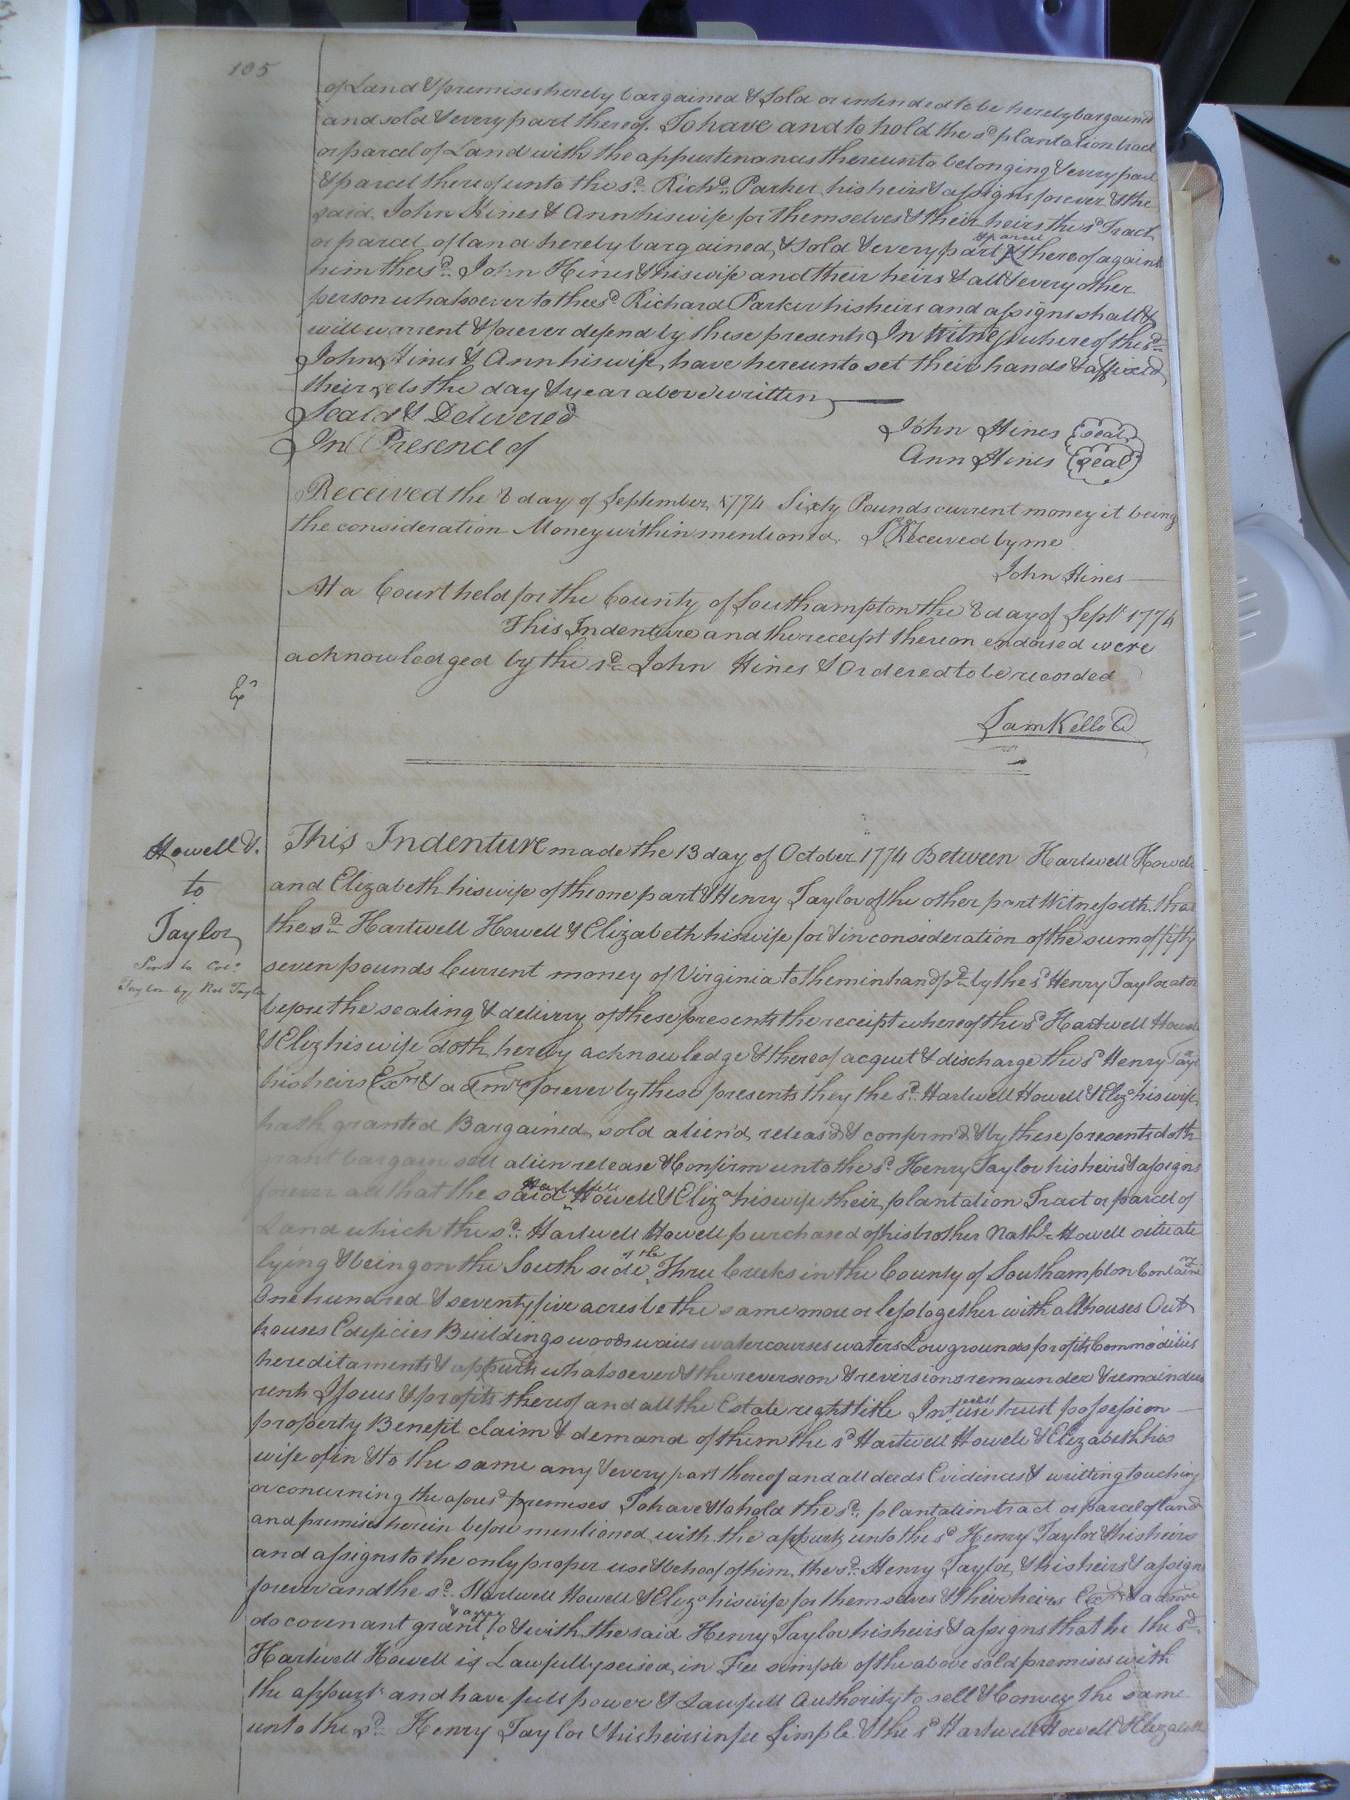 105
of Land & premises hereby bargained & Sold or intended to be hereby bargained
and sold & every part thereof. To have and to hold the sd plantation tract
or parcel of Land with the appurtenances thereunto belonging & every part
& parcel thereof unto the sd. Richd. Parker his heirs & assigns forever & the
said John Hines & Ann his wife for themselves & their heirs the sd Tract
or parcel of land hereby bargained & sold & every part & parcel thereof against
him the sd. John Hines & his wife and their heirs & all & every other
person whatsoever to the sd Richard Parker his heirs and assigns shall &
will warrent & forever defend by these presents In Witness whereof the sd.
John Hines & Ann his wife have hereunto set their hands & affixed
their sels the day & year above written
Seal'd & Delivered
In Presence of
John Hines (Seal)
Ann Hines (Seal)
Received the 8 day of September 1774 Sixty Pounds current money it being
the consideration Money within mentioned. Received by me
John Hines
At a Court held for the County of Southampton the 8 day of Sept 1774
This Indenture and the receipt thereon endorsed were
acknowledged by the sd. John Hines & Ordered to be recorded
Exd
Sam Kello C
Howell &.
to
Taylor
This Indenture made the 13 day of October 1774 Between Hartwell Howell
and Elizabeth his wife of the one part & Henry Taylor of the other part Witnesseth that
the sd. Hartwell Howell & Elizabeth his wife for & in consideration of the sum of fifty
seven pounds Current money of Virginia to them in hand pd. by the sd Henry Taylor at or
before the sealing & delivery of these presents the receipt whereof the sd Hartwell Howell
& Eliz his wife doth hereby acknowledge & thereof acquet & discharge the sd Henry Taylr
his heirs Exrs & admrs forever by these presents they the sd. Hartwell Howell & Eliza his wife
hath granted Bargained sold alien'd releas'd & confirm'd & by these presents doth
grant bargain sell alien release & Confirm unto the sd Henry Taylor his heirs & assigns
forever all that the said Hartwell Howell & Eliza his wife their plantation Tract or parcel of
Land which the sd. Hartwell Howell purchased of his brother Nathl. Howell situate
lying & being on the South side of the Three Creeks in the County of Southampton Containing
One hundred & seventy five acres be the same more or less together with all houses Out
houses Edificies Buildings woods waies watercourses waters Low grounds profits Commodities
hereditaments & appurts whatsoever & the reversion & reversions remainder & remainders
rents Issues & profits thereof and all the Estate right title Interest use trust possession
property Benefit claim & demand of them the sd Hartwell Howell & Elizabeth his
wife of in & to the same any & every part thereof and all deeds Evidences & writting touching
or concerning the afores'd premises To have & to hold the sd. plantation tract or parcel of land
and premises herein before mentioned with the appurts unto the sd Henry Taylor & his heirs
and assigns to the only proper use & behoof of him the sd. Henry Taylor & his heirs & assigns
forever and the sd. Hartwell Howell & Eliza his wife for themselves & their heirs Exrs & admrs
do covenant grant & agree to & with the said Henry Taylor his heirs & assigns that he the sd.
Hartwell Howell is Lawfully seised in Fee simple of the above sold premises with
the appurts and have full power & Lawfull Authority to sell & Convey the same
unto the sd. Henry Taylor & his heirs in fee Simple & the sd Hartwell Howell & Elizabeth